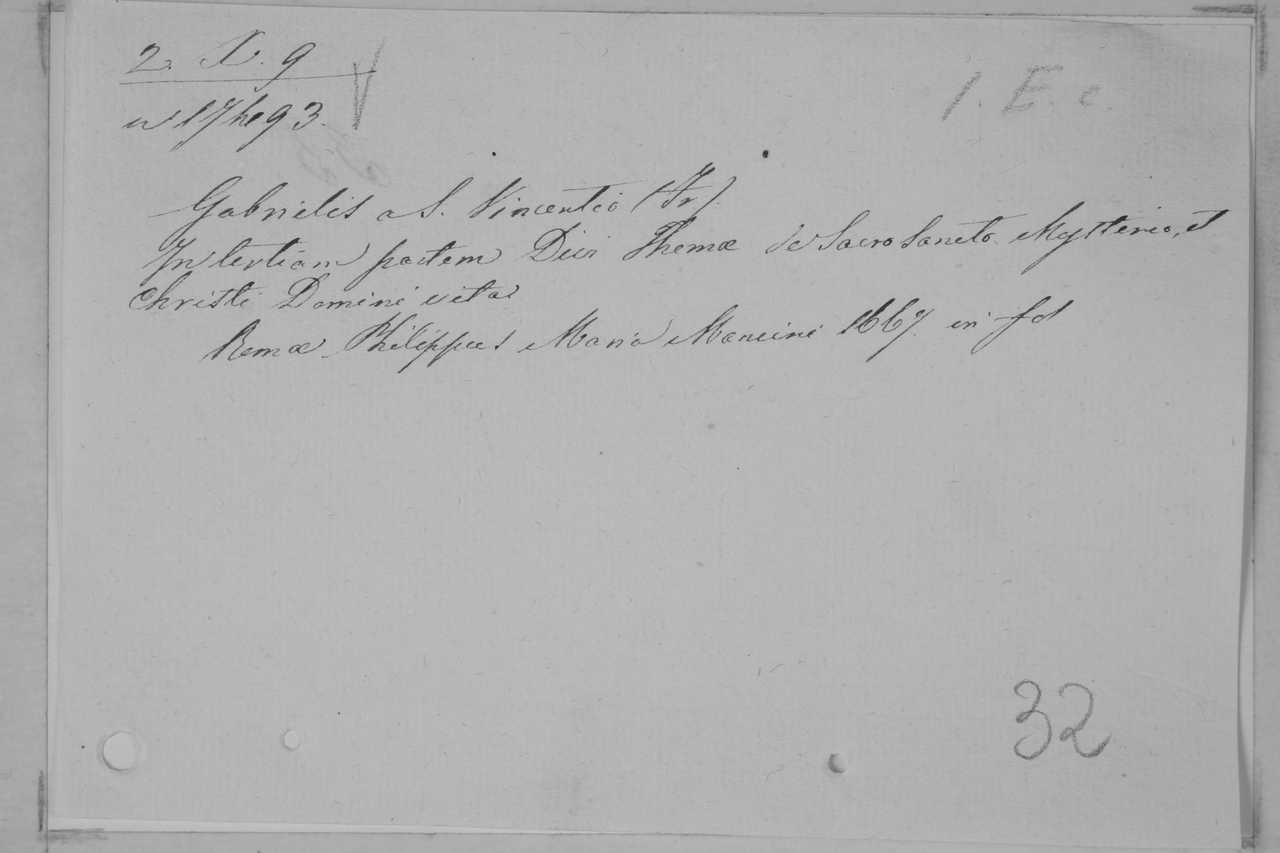 2. X. 9
1. E. c.
Gabrielis a S. Vincentio (Fr).
In tertiam partem Divi Thomæ de Sacro Sancto Mysterio, et
Christi Domini vita
Romæ Philippus Maria Mancini 1667. in fol
32